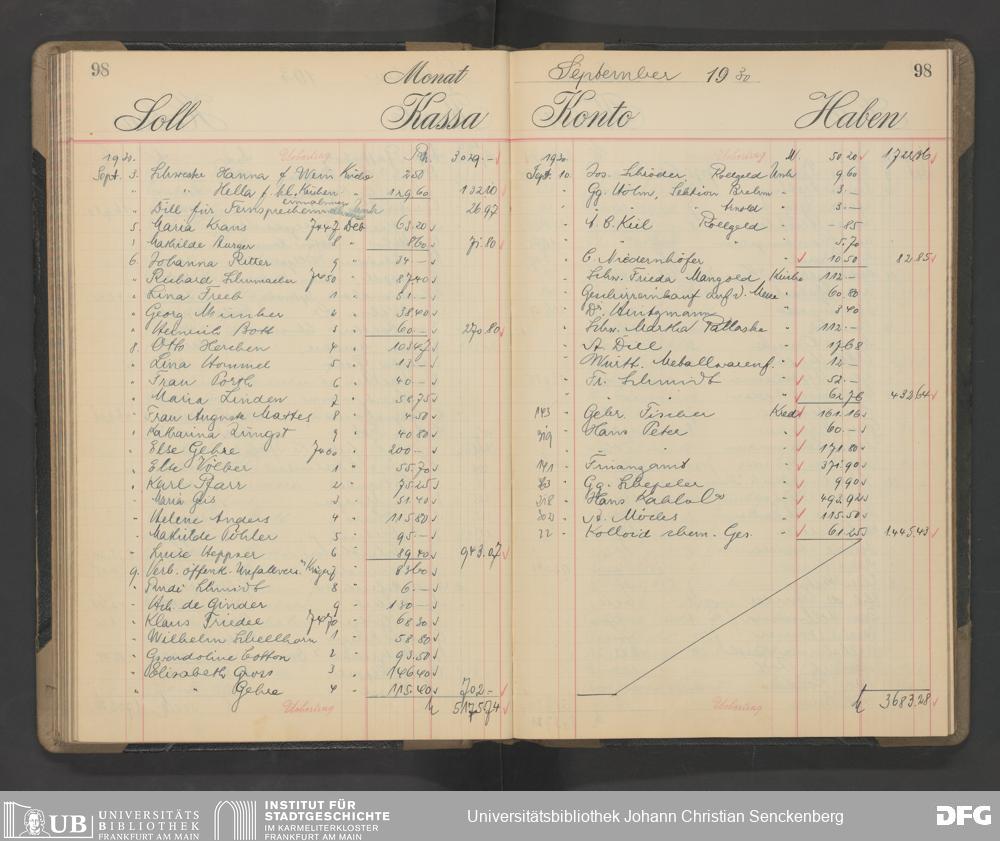 98
Monat
Soll Kassa
1930. Uebertrag 3029.-
Sept. 3. Schwester Hanna f. Wein Küche 2.50
" " Hella f. kl. Küchen- 129.60 132.10
einnahmen
" Dill für Fernsprechein 26.97
5. Maria Kraus 7247 Deb 63.20
Mathilde Burger 8 " 8.60 71.80
6. Johanna Ritter 9 " 34.-
" Richard Schumacher 7250 " 87.40
" Lina Treeb 1 " 51.-
" Georg Münker 2 " 38.40
" Heinrich Bott 3 " 60.- 270.80
8. Otto Herchen 4 "
" Lina Hommel 5 " 13.-
" Frau Porth 6 " 40.-
" Maria Linden 7 " 58.75
" Frau Auguste Mattes 8 " 4.50
" Katharina Züngst 9 " 40.80
" Else Gehre 7260 " 200.-
" Else Völber 1 " 55.70
" Karl Pfarr 2 " 75.25
" Maria Geis 3 " 51.40
" Helene Angers 4 " 115.80
" Mathilde Pöhler 5 " 95.-
" Luise Heppner 6 " 89.40 943.07
9. Verb. öffentl. Unfallvers. 83.60
" Schmidt 8 " 6.-
" de Ginder 9 " 130.-
" Klaus Friedel 7270 " 68.30
" Wilhelm Schellhorn 1 " 58.80
" Gwendoline Cotton 2 " 93.50
" Elisabeth Gross 3 " 146.40
" " Gehre 4 " 115.40 702.-
Uebertrag 5175.74
September 1930 98
Konto Haben
1930. Uebertrag 50.20 1722.36
Sept. 10. Jos. Schröder Rollgeld Unk 9.60
" Gg. Holm, Sektion Brehm " 3.-
" " " Arnold " 3.-
" A. B. Keil Rollgeld " -.85
" " " 5.70
" C. Niedernhöfer " 10.50 82.85
" Schw. Frieda Mangold Küche 112.-
" Geschirreinkauf " 60.80
" Dr. Hintzmann " 3.40
" Schw. Martha Patlaske " 112.-
" A. Dill " 17.68
" Württ. Metallwarenf. " 12.-
" Fr. Schmidt " 52.-
" " " 62.76 432.64
143 " Gebr. Fischer Kred 161.16
" Hans Peter " 60.-
" 171.80
141 " Finanzamt " 371.90
" Gg. Schepeler " 9.90
318 " Hans Kahlol " 493.92
302 " A. Möcks " 115.50
22 " Kolloid chem. Ges. " 61.25 1445.43
Uebertrag 3683.28
UB UNIVERSITÄTS
BIBLIOTHEK
FRANKFURT AM MAIN
INSTITUT FÜR
STADTGESCHICHTE
IM KARMELITERKLOSTER
FRANKFURT AM MAIN
Universitätsbibliothek Johann Christian Senckenberg
DFG